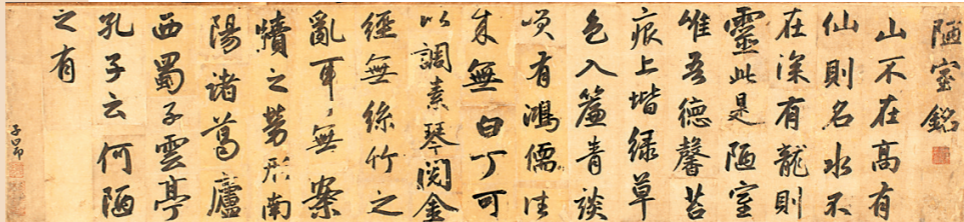 陋室銘
山不在高有
仙則名水不
在深有龍則
靈此是陋室
惟吾德馨苔
痕上堦緑草
色入簾青談
笑有鴻儒往
来無白丁可
以調素琴閱金
經無絲竹之
亂耳無案
牘之勞形南
陽諸葛廬
西蜀子雲亭
孔子云何陋
之有
子昂